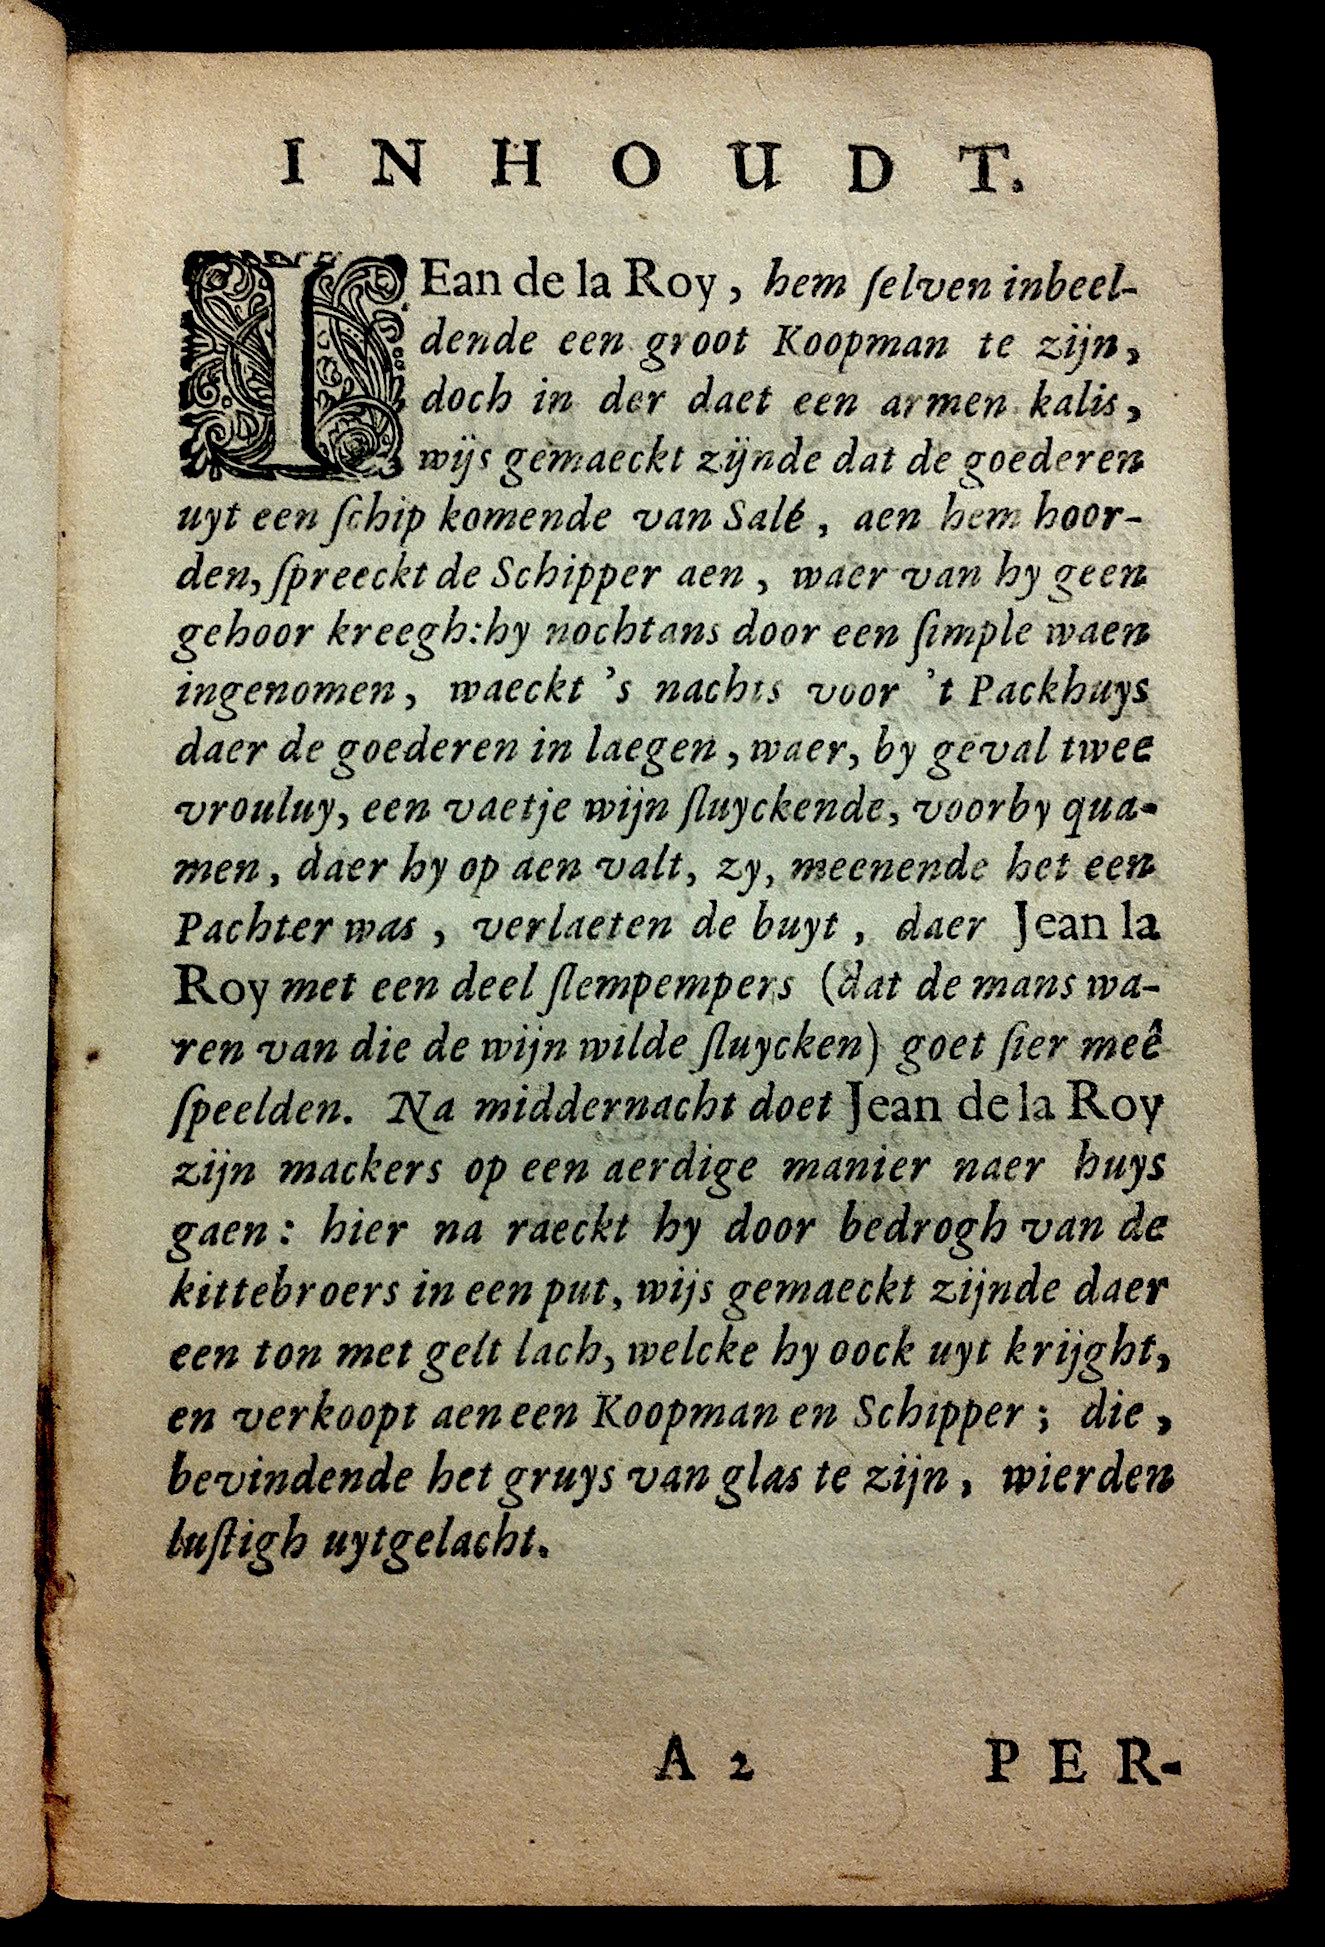 INHOUDT.
IEan de la Roy, hem ſelven inbeel-
dende een groot Koopman te zijn,
doch in der daet een armen kalis,
wijs gemaeckt zijnde dat de goederen
uyt een ſchip komende van Salé, aen hem hoor-
den, ſpreeckt de Schipper aen, waer van hy geen
gehoor kreegh: hy nochtans door een ſimple waen
ingenomen, waeckt 's nachts voor 't Packhuys
daer de goederen in laegen, waer, by geval twee
vrouluy, een vaetje wijn ſluyckende, voorby qua-
men, daer hy op aen valt, zy, meenende het een
Pachter was, verlaeten de buyt, daer Jean la
Roy met een deel ſlempempers (dat de mans wa-
ren van die de wijn wilde ſluycken) goet ſier meê
ſpeelden. Na middernacht doet Jean de la Roy
zijn mackers op een aerdige manier naer huys
gaen: hier na raeckt hy door bedrogh van de
kittebroers in een put, wijs gemaeckt zijnde daer
een ton met gelt lach, welcke hy oock uyt krijght,
en verkoopt aen een Koopman en Schipper; die,
bevindende het gruys van glas te zijn, wierden
luſtigh uytgelacht.
A 2 PER-